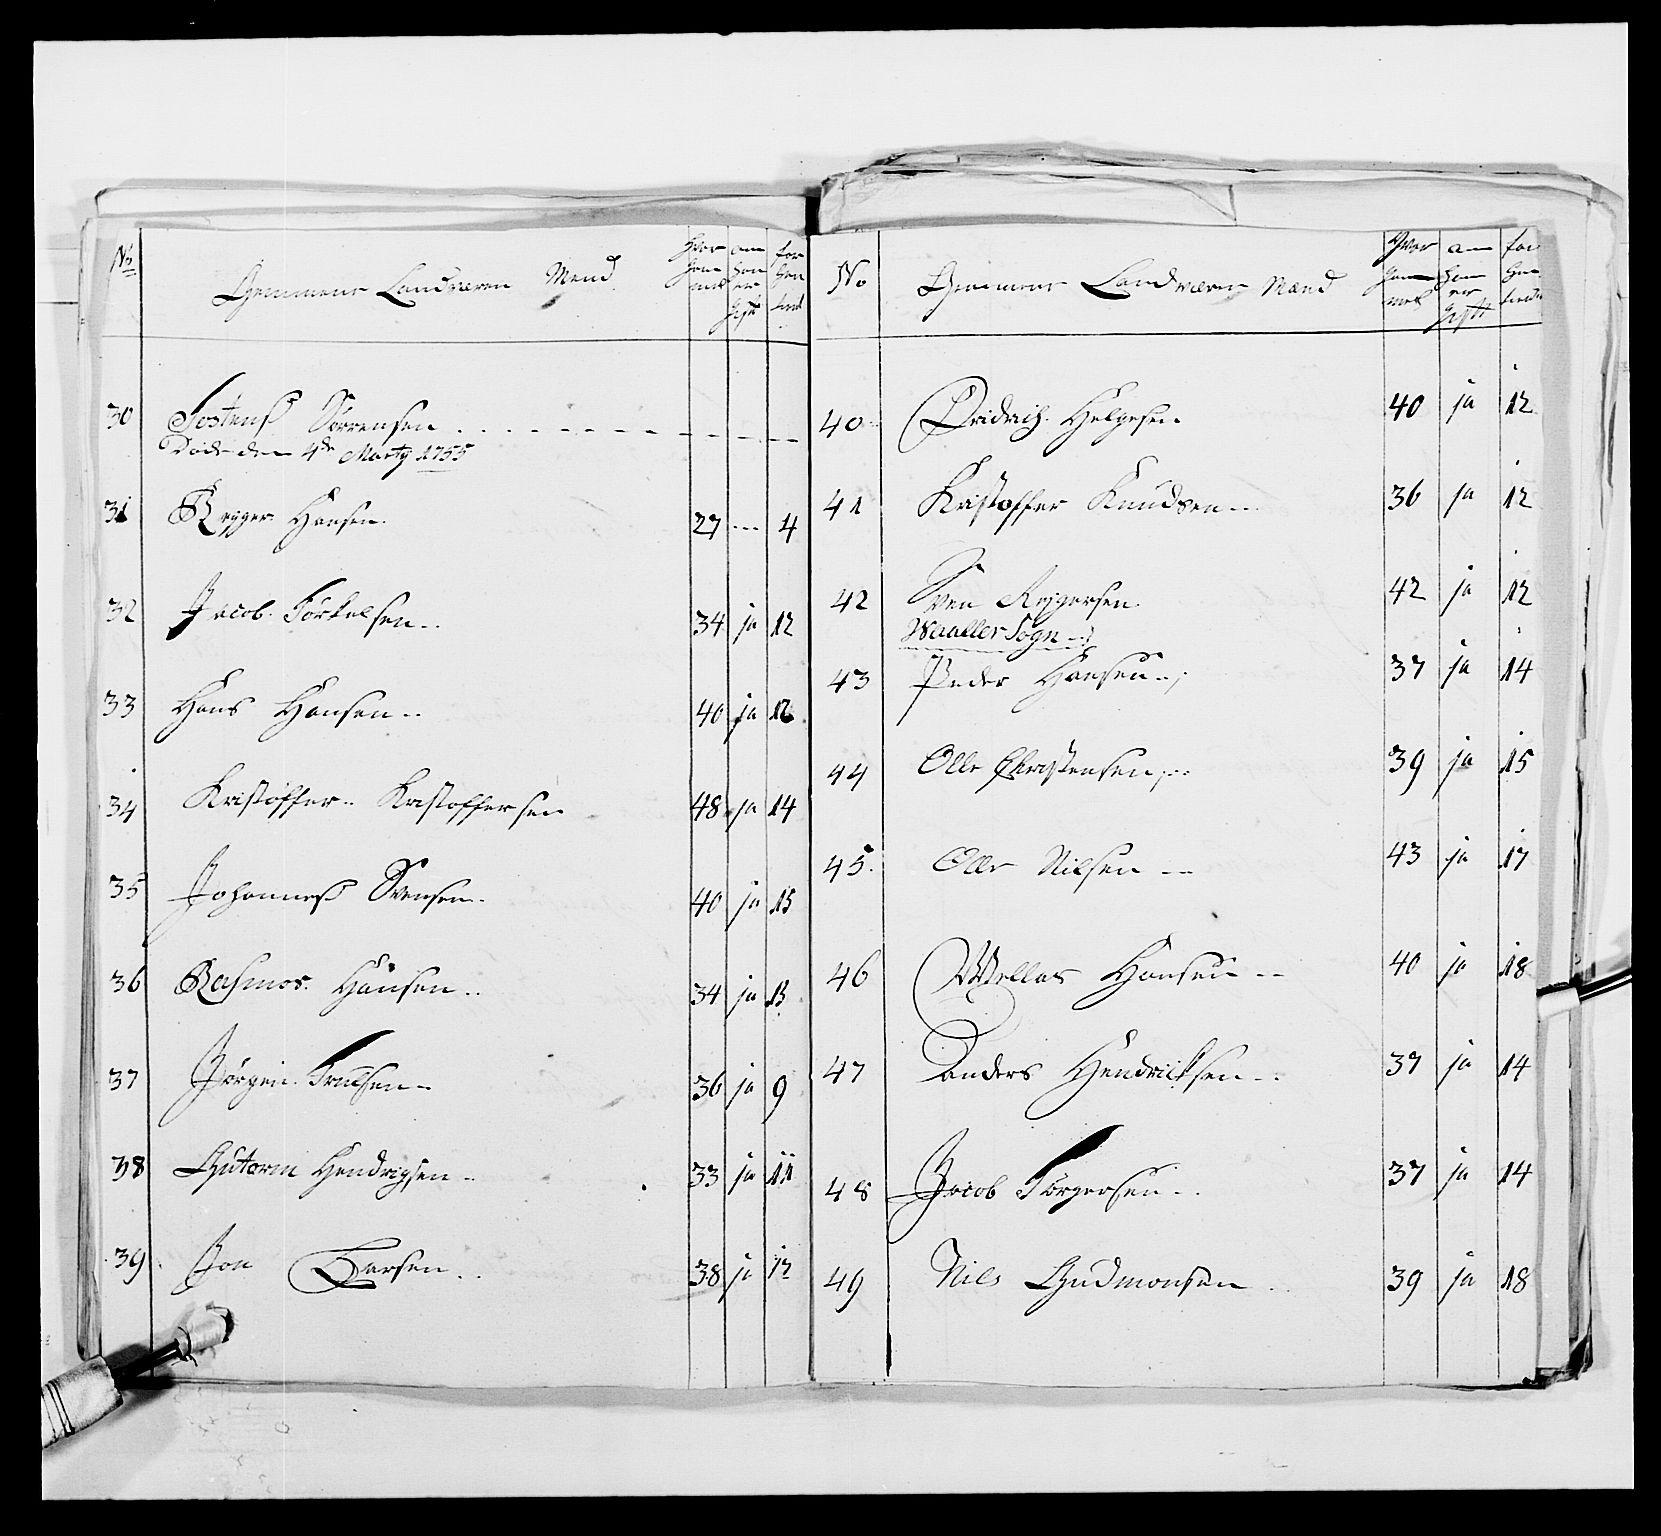 No
Gemmene Landværn Mend
Hvor gam mel
om han er gift
for hen tient
30 Tostenß Sörrensen
Döde den 4de Marty 1755
31 Reyger Hansen 27 --- 4
32 Jacob Törkelsen 34 ja 12
33 Hans Hansen 40 ja 12
34 Kristoffer Kristoffersen 48 ja 14
35 Johanneß Svensen 40 ja 15
36 Rasmos Hansen 34 ja 13
37 Jörgen Truelsen 36 ja 9
38 Gutorm Hendrigsen 33 ja 11
39 Jon Larsen 38 ja 12
No
Gemmene Landværn Mænd
Hvor gam mel
om han er gift
for han tient
40 Dridrich Helgesen 40 ja 12
41 Kristoffer Knudsen 36 ja 12
42 Sven Reyersen 42 ja 12
Waaller Sogn
43 Peder Hansen 37 ja 14
44 Olle Christensen 39 ja 15
45 Olle Nilsen 43 ja 17
46 Wellas Hansen 40 ja 18
47 Anders Hendricksen 37 ja 14
48 Jacob Törgersen 37 ja 14
49 Nils Gudmonsen 39 ja 18